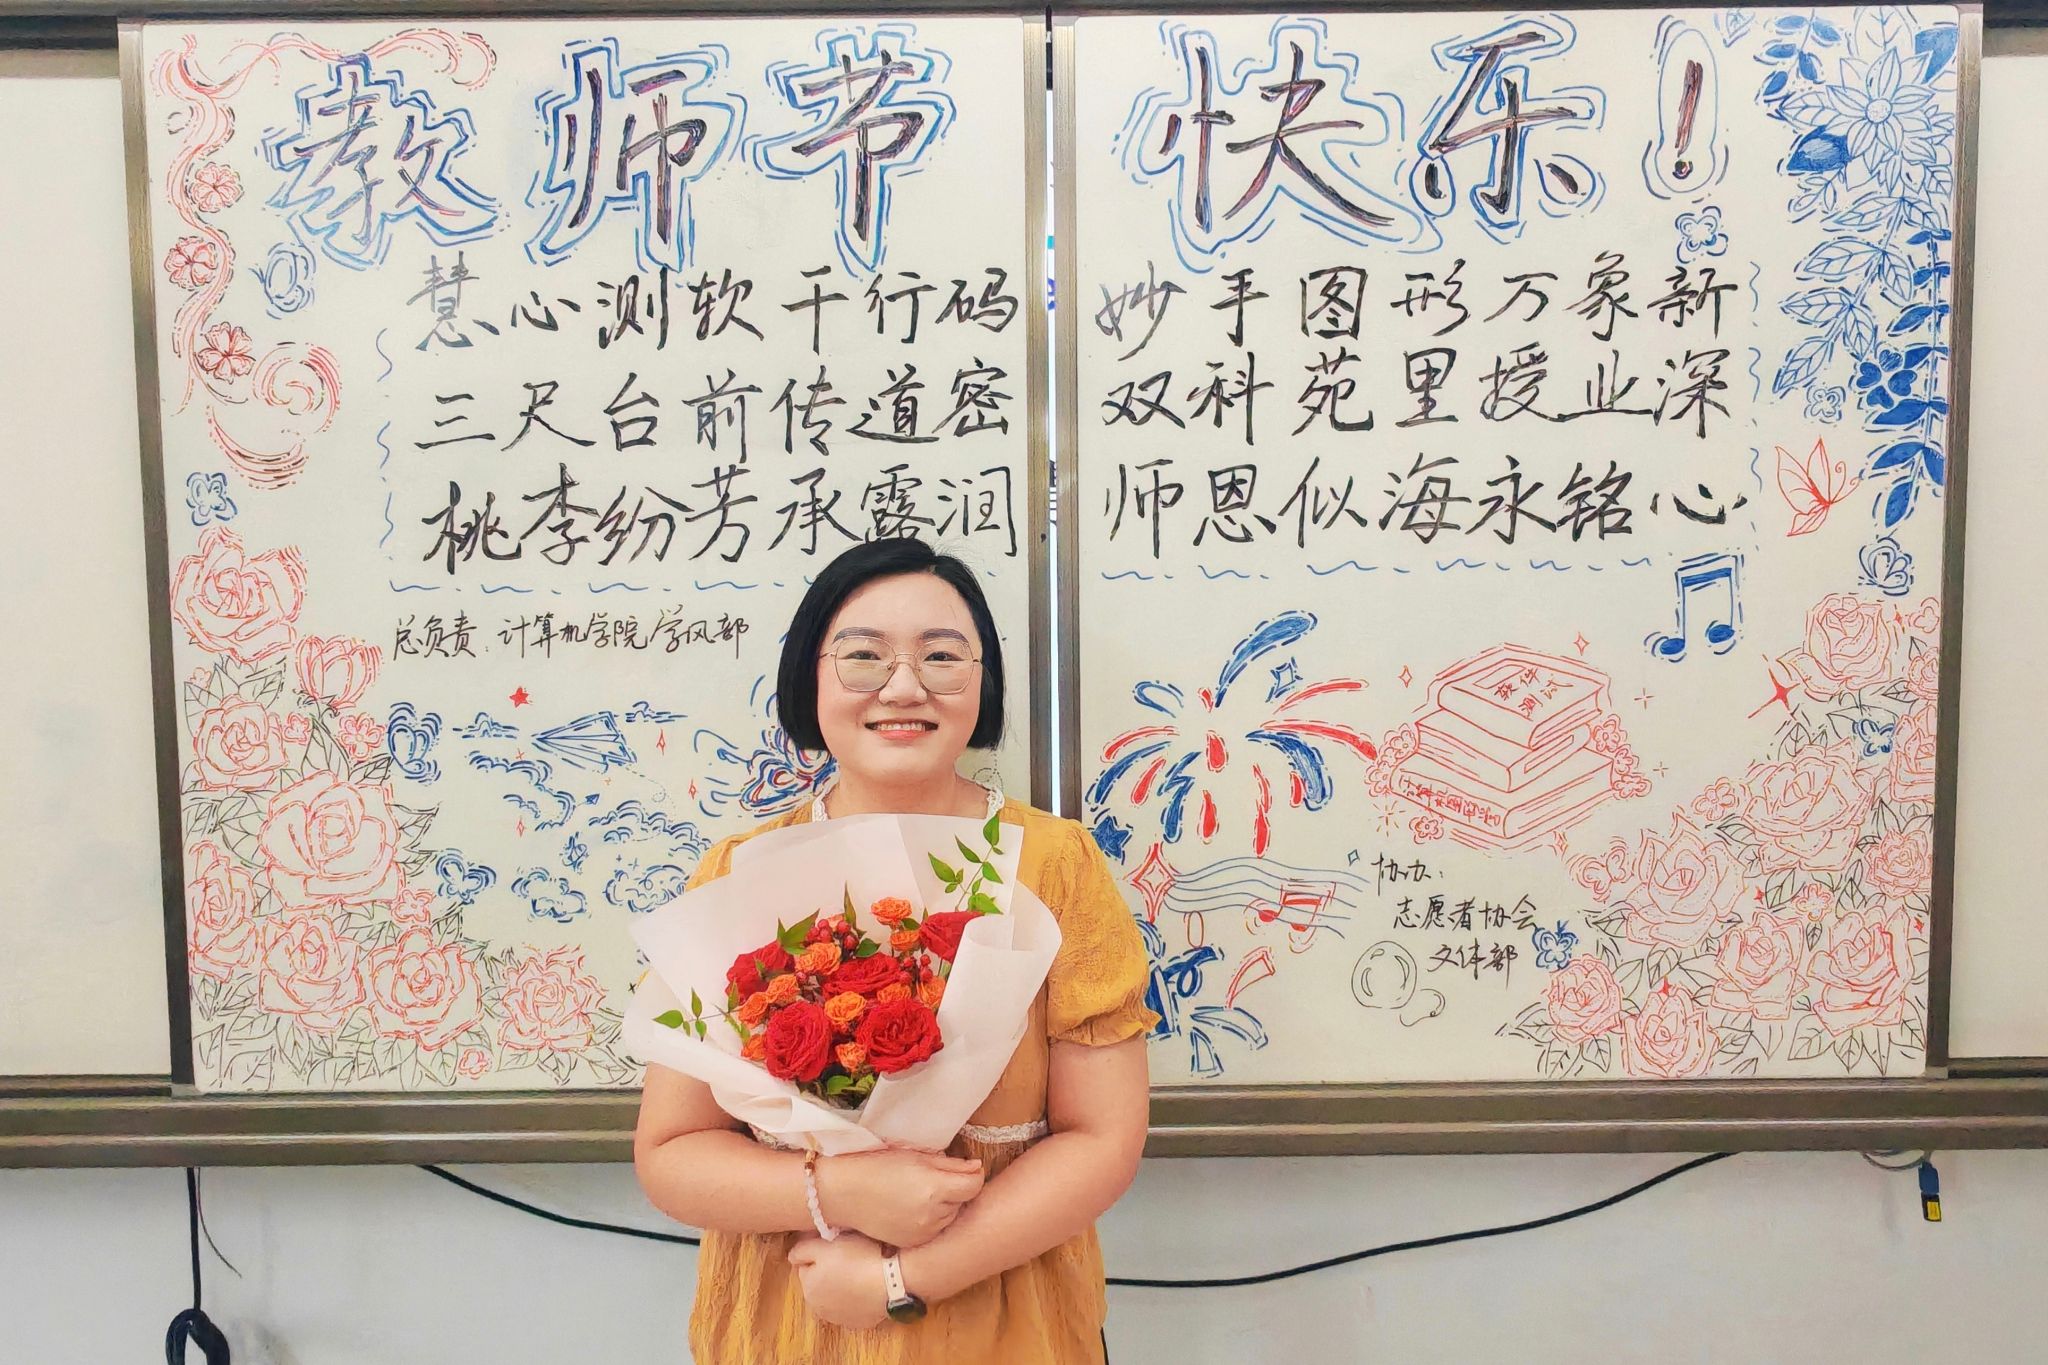 教师节
快乐!
慧心测软千行码
三尺台前传道密
桃李纷芳承露润
妙手图形万象新
双科苑里授业深
师恩似海永铭心
总负责:计算机学院学风部
软件
测试
计算机图形学
协办:
志愿者协会
文体部